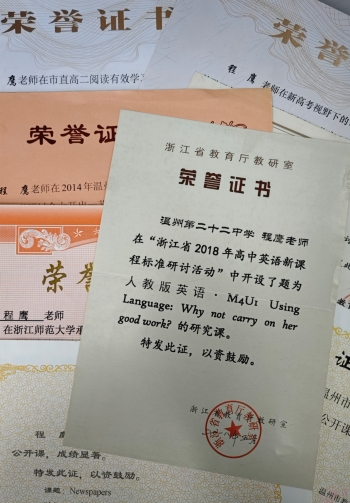 荣誉证书
荣誉
程 鹰 老师在市直高二阅读有效学习
程 鹰 老师在新高考视野下的
荣誉证
鹰 老师在2014年温州
荣
程 鹰 老师
在浙江师范大学承
浙江省教育厅教研室
荣誉证书
温州第二十二中学 程鹰老师
在“浙江省2018年高中英语新课
程标准研讨活动”中开设了题为
人教版英语·M4U1 Using
Language: Why not carry on her
good work? 的研究课。
特发此证，以资鼓励。
浙江省教育厅教研室
程
公开课，成绩显著。
特发此证，以资鼓励。
课题：Newspapers
温州市